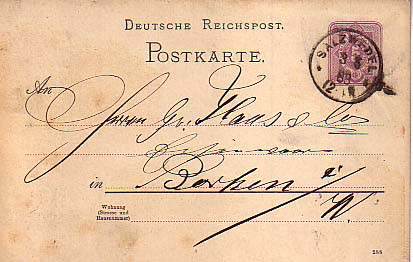 DEUTSCHE REICHSPOST.
POSTKARTE.
SALZWEDEL
An
Herrn Gr. Klaus & Co
in Borken i/W
Wohnung
(Strasse und
Hausnummer)
288